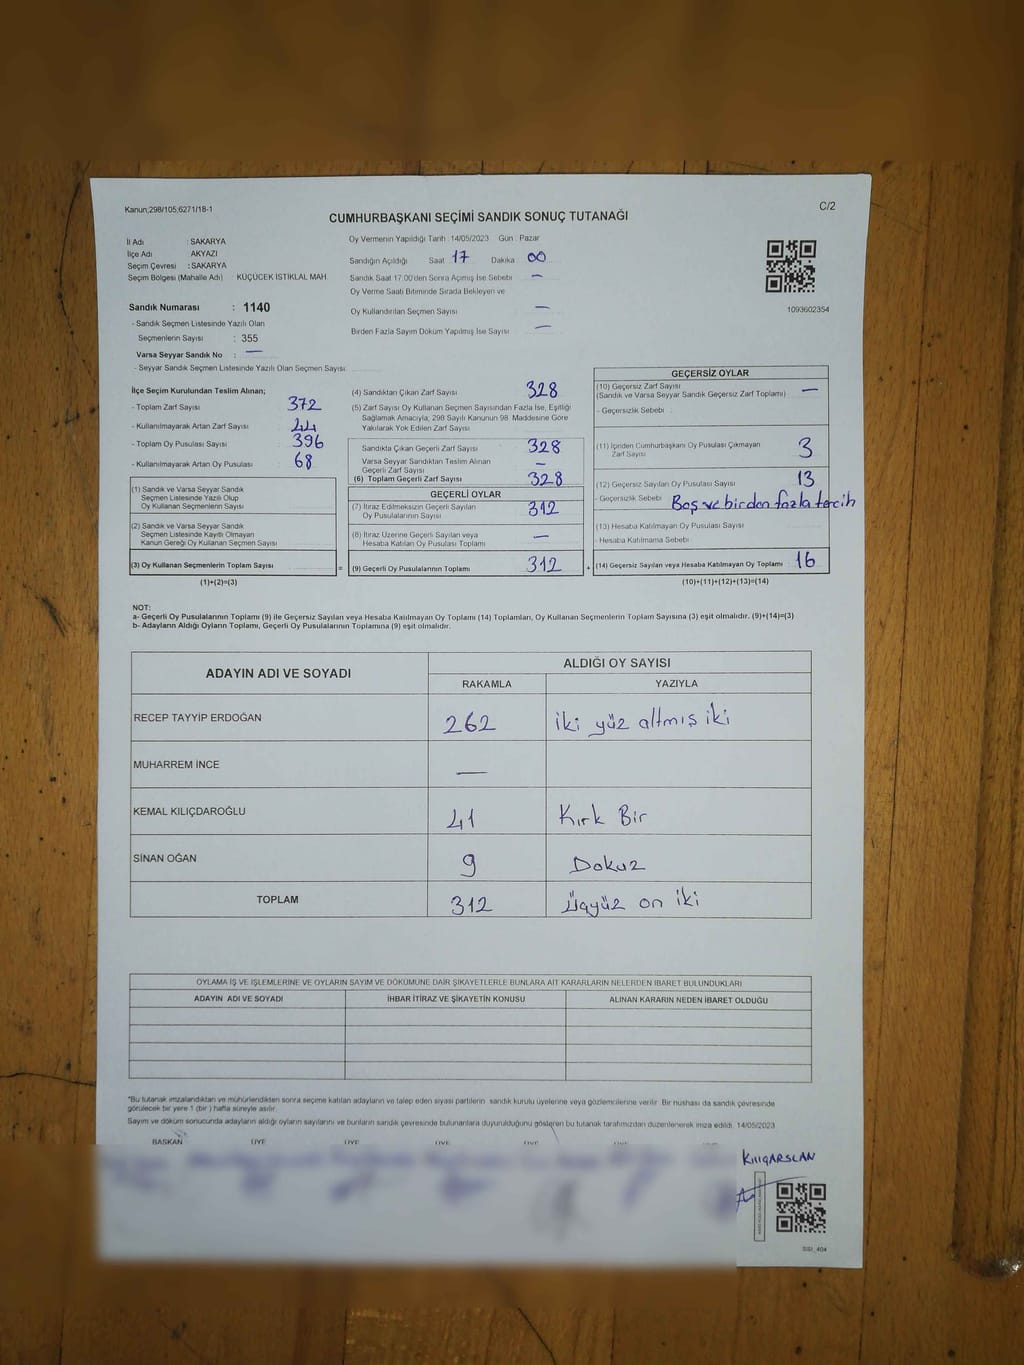 Kanun;298/105;6271/18-1
C/2
CUMHURBAŞKANI SEÇİMİ SANDIK SONUÇ TUTANAĞI
İl Adı : SAKARYA
İlçe Adı AKYAZI
Seçim Çevresi : SAKARYA
Seçim Bölgesi (Mahalle Adı) : KÜÇÜCEK İSTİKLAL MAH.
Oy Vermenin Yapıldığı Tarih : 14/05/2023 Gün : Pazar
Sandığın Açıldığı Saat 17 Dakika 00
Sandık Saat 17:00'den Sonra Açılmış İse Sebebi —
Oy Verme Saati Bitiminde Sırada Bekleyen ve
Oy Kullandırılan Seçmen Sayısı —
Birden Fazla Sayım Döküm Yapılmış İse Sayısı —
1093602354
Sandık Numarası : 1140
- Sandık Seçmen Listesinde Yazılı Olan
Seçmenlerin Sayısı : 355
Varsa Seyyar Sandık No : —
- Seyyar Sandık Seçmen Listesinde Yazılı Olan Seçmen Sayısı:
İlçe Seçim Kurulundan Teslim Alınan;
- Toplam Zarf Sayısı 372
- Kullanılmayarak Artan Zarf Sayısı 44
- Toplam Oy Pusulası Sayısı 396
- Kullanılmayarak Artan Oy Pusulası 68
(1) Sandık ve Varsa Seyyar Sandık
Seçmen Listesinde Yazılı Olup
Oy Kullanan Seçmenlerin Sayısı
(2) Sandık ve Varsa Seyyar Sandık
Seçmen Listesinde Kayıtlı Olmayan
Kanun Gereği Oy Kullanan Seçmen Sayısı
(3) Oy Kullanan Seçmenlerin Toplam Sayısı
(1)+(2)=(3)
=
(4) Sandıktan Çıkan Zarf Sayısı 328
(5) Zarf Sayısı Oy Kullanan Seçmen Sayısından Fazla İse, Eşitliği
Sağlamak Amacıyla, 298 Sayılı Kanunun 98. Maddesine Göre
Yakılarak Yok Edilen Zarf Sayısı
Sandıkta Çıkan Geçerli Zarf Sayısı 328
Varsa Seyyar Sandıktan Teslim Alınan
Geçerli Zarf Sayısı —
(6) Toplam Geçerli Zarf Sayısı 328
GEÇERLİ OYLAR
(7) İtiraz Edilmeksizin Geçerli Sayılan
Oy Pusulalarının Sayısı 312
(8) İtiraz Üzerine Geçerli Sayılan veya
Hesaba Katılan Oy Pusulaları Toplamı —
(9) Geçerli Oy Pusulalarının Toplamı 312
+
GEÇERSİZ OYLAR
(10) Geçersiz Zarf Sayısı
(Sandık ve Varsa Seyyar Sandık Geçersiz Zarf Toplamı) —
- Geçersizlik Sebebi :
(11) İçinden Cumhurbaşkanı Oy Pusulası Çıkmayan
Zarf Sayısı 3
(12) Geçersiz Sayılan Oy Pusulası Sayısı 13
- Geçersizlik Sebebi : Boş ve birden fazla tercih
(13) Hesaba Katılmayan Oy Pusulası Sayısı
- Hesaba Katılmama Sebebi :
(14) Geçersiz Sayılan veya Hesaba Katılmayan Oy Toplamı 16
(10)+(11)+(12)+(13)=(14)
NOT:
a- Geçerli Oy Pusulalarının Toplamı (9) ile Geçersiz Sayılan veya Hesaba Katılmayan Oy Toplamı (14) Toplamları, Oy Kullanan Seçmenlerin Toplam Sayısına (3) eşit olmalıdır. (9)+(14)=(3)
b- Adayların Aldığı Oyların Toplamı, Geçerli Oy Pusulalarının Toplamına (9) eşit olmalıdır.
ADAYIN ADI VE SOYADI ALDIĞI OY SAYISI
RAKAMLA YAZIYLA
RECEP TAYYİP ERDOĞAN 262 iki yüz altmış iki
MUHARREM İNCE —
KEMAL KILIÇDAROĞLU 41 Kırk Bir
SİNAN OĞAN 9 Dokuz
TOPLAM 312 Üçyüz on iki
OYLAMA İŞ VE İŞLEMLERİNE VE OYLARIN SAYIM VE DÖKÜMÜNE DAİR ŞİKAYETLERLE BUNLARA AİT KARARLARIN NELERDEN İBARET BULUNDUKLARI
ADAYIN ADI VE SOYADI İHBAR İTİRAZ VE ŞİKAYETİN KONUSU ALINAN KARARIN NEDEN İBARET OLDUĞU
*Bu tutanak imzalandıktan ve mühürlendikten sonra seçime katılan adayların ve talep eden siyasi partilerin sandık kurulu üyelerine veya gözlemcilerine verilir. Bir nüshası da sandık çevresinde
görülecek bir yere 1 (bir) hafta süreyle asılır.
Sayım ve döküm sonucunda adayların aldığı oyların sayılarını ve bunların sandık çevresinde bulunanlara duyurulduğunu gösteren bu tutanak tarafımızdan düzenlenerek imza edildi. 14/05/2023
BAŞKAN ÜYE ÜYE ÜYE ÜYE ÜYE
KILIÇARSLAN